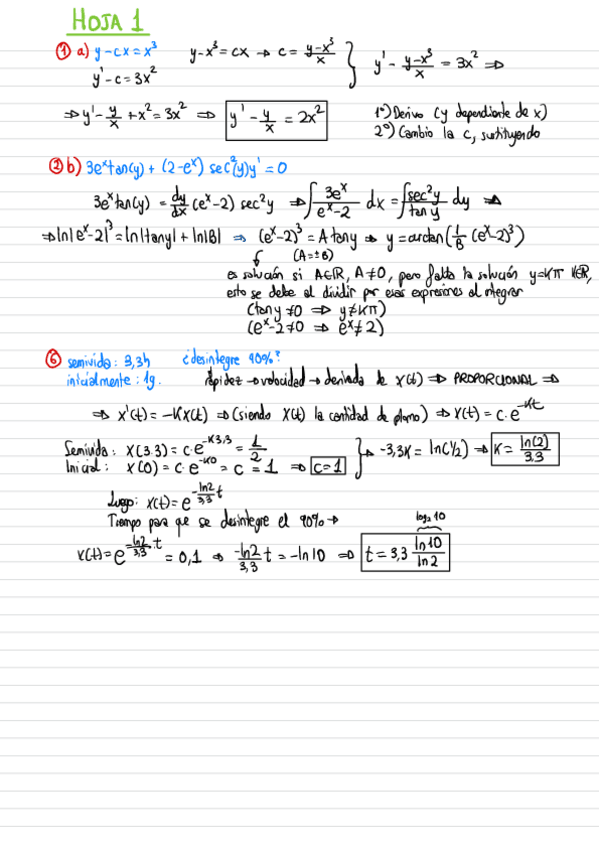 HOJA 1
① a) y-cx=x³ y-x³=cx → c=\frac{y-x³}{x} } y'-\frac{y-x³}{x}=3x² ⇒
y'-c=3x²
⇒y'-\frac{y}{x}+x²=3x² ⇒ y'-\frac{y}{x}=2x² 1º) Derivo (y dependiente de x)
2º) Cambio la c, sustituyendo
② b) 3eˣtan(y)+(2-eˣ)sec²(y)y'=0
3eˣtan(y)=\frac{dy}{dx}(eˣ-2)sec²y ⇒∫\frac{3eˣ}{eˣ-2}dx=∫\frac{sec²y}{tan y}dy ⇒
⇒ln|eˣ-2|³=ln|tany|+ln|B| ⇒ (eˣ-2)³=A tany → y=arctan(\frac{1}{B}(eˣ-2)³)
(A=±B)
es solución si A∈ℝ, A≠0, pero falta la solución y=kπ k∈ℝ,
esto se debe al dividir por esas expresiones al integrar
(tany≠0 ⇒ y≠kπ)
(eˣ-2≠0 ⇒ eˣ≠2)
⑥ semivida: 3,3h ¿desintegre 90%?
inicialmente: 1g. rápidez→velocidad→derivada de x(t) ⇒ PROPORCIONAL ⇒
⇒ x'(t)=-Kx(t) ⇒(siendo x(t) la cantidad de plomo) ⇒x(t)=c·e^{-Kt}
Semivida: x(3.3)=c·e^{-K3,3}=\frac{1}{2} } → -3,3K=ln(1/2) ⇒ K=\frac{ln(2)}{3,3}
Inicial: x(0)=c·e^{-K0}=c=1 ⇒ c=1
Luego: x(t)=e^{-\frac{ln2}{3,3}t}
Tiempo para que se desintegre el 90%→ log₂10
x(t)=e^{-\frac{ln2}{3,3}·t}=0,1 → \frac{-ln2}{3,3}t=-ln10 ⇒ t=3,3\frac{ln10}{ln2}